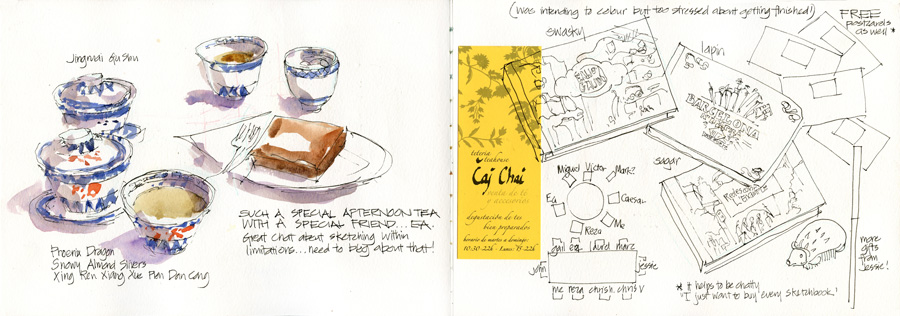 Jingmai Gu Shu
SUCH A SPECIAL AFTERNOON TEA
WITH A SPECIAL FRIEND... EA.
Great chat about sketching within
limitations... need to blog about that!
Phoenix Dragon
Snowy Almond Slivers
Xing Ren Xiang Xue Pian Dan Cong
(Was intending to colour but too stressed about getting finished!)
FREE
postcards
as well *
swasky
lapin
BARCELONA
sagar
tetería
teahouse
Caj Chai
venta de té
y accesorios
degustación de tes
bien preparados
horario de martes a domingo:
10:30-22h Lunes: 15-22h
Miguel Victor Marx
Ea
Caesar
Me
Reza
gail ea Aurel marz
john
Jessie
me reza chrish chris v
more
gifts
from
Jessie!
* it helps to be chatty
"I just want to buy every sketchbook!"